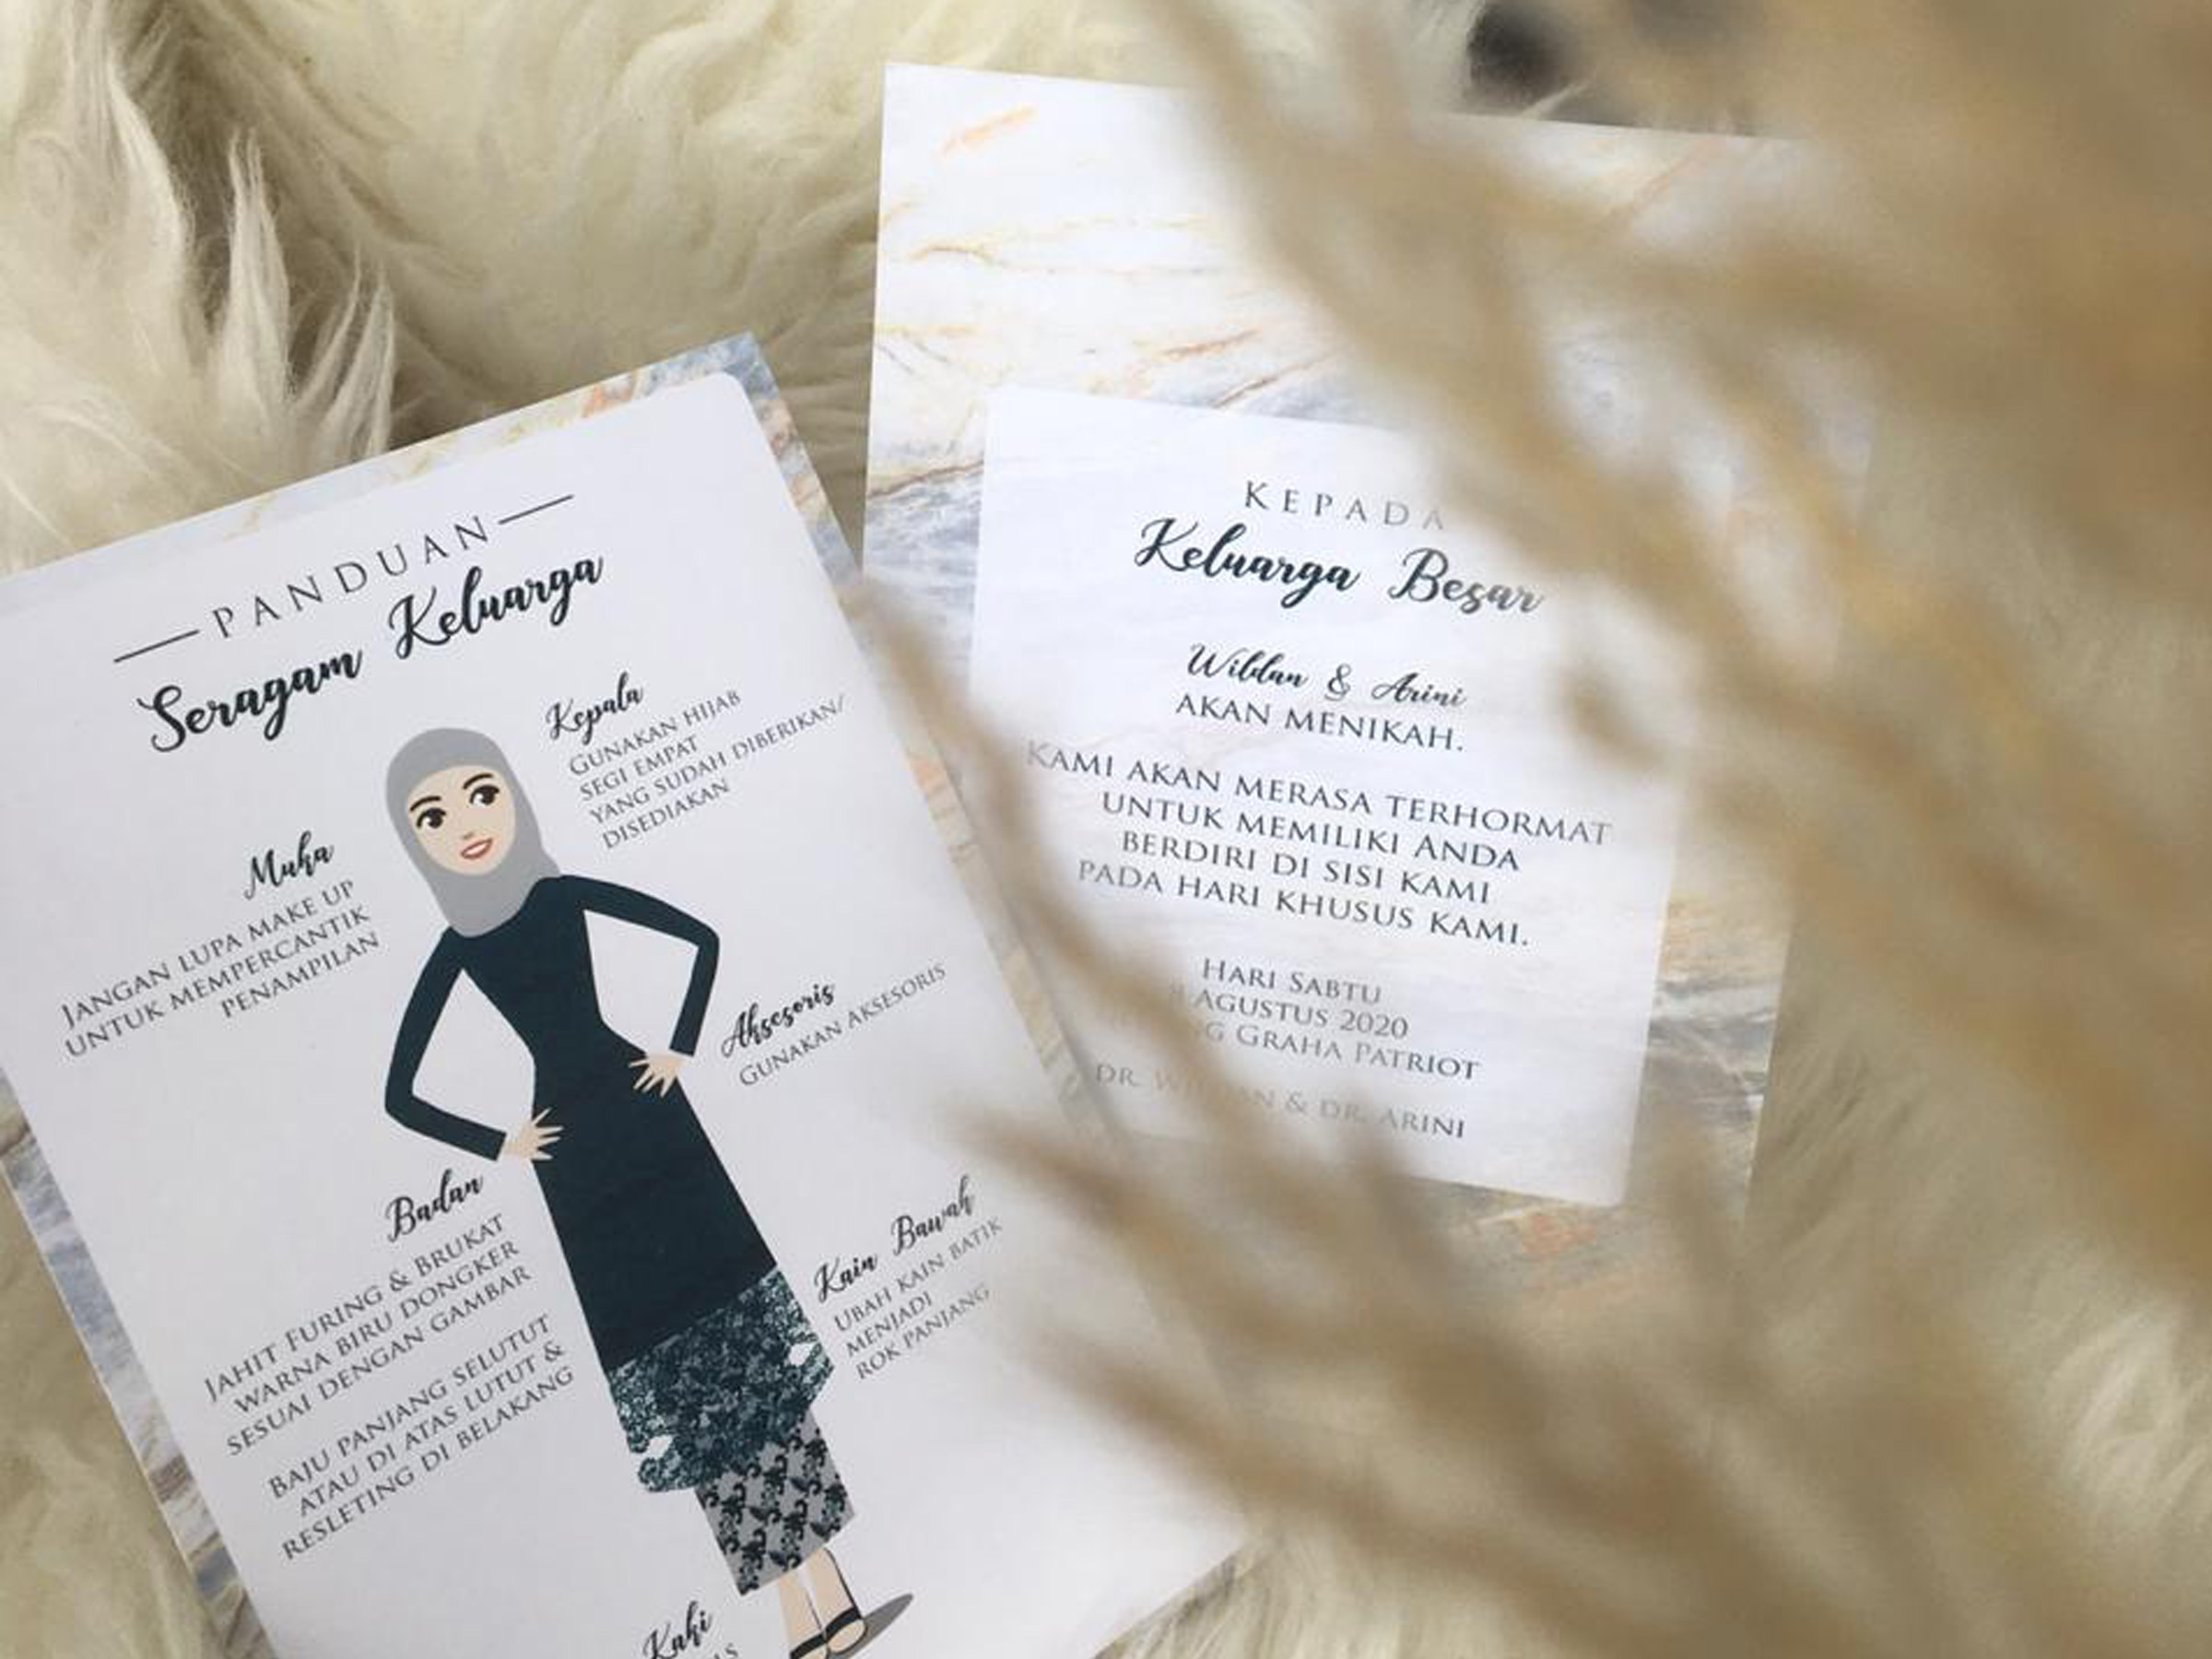 PANDUAN
Seragam Keluarga
Kepala
GUNAKAN HIJAB
SEGI EMPAT
YANG SUDAH DIBERIKAN/
DISEDIAKAN
Muka
JANGAN LUPA MAKE UP
UNTUK MEMPERCANTIK
PENAMPILAN
Aksesoris
GUNAKAN AKSESORIS
Badan
JAHIT FURING & BRUKAT
WARNA BIRU DONGKER
SESUAI DENGAN GAMBAR
BAJU PANJANG SELUTUT
ATAU DI ATAS LUTUT &
RESLETING DI BELAKANG
Kain Bawah
UBAH KAIN BATIK
MENJADI
ROK PANJANG
Kaki
KEPADA
Keluarga Besar
Wildan & Arini
AKAN MENIKAH.
KAMI AKAN MERASA TERHORMAT
UNTUK MEMILIKI ANDA
BERDIRI DI SISI KAMI
PADA HARI KHUSUS KAMI.
HARI SABTU
AGUSTUS 2020
GRAHA PATRIOT
DR. & DR. ARINI